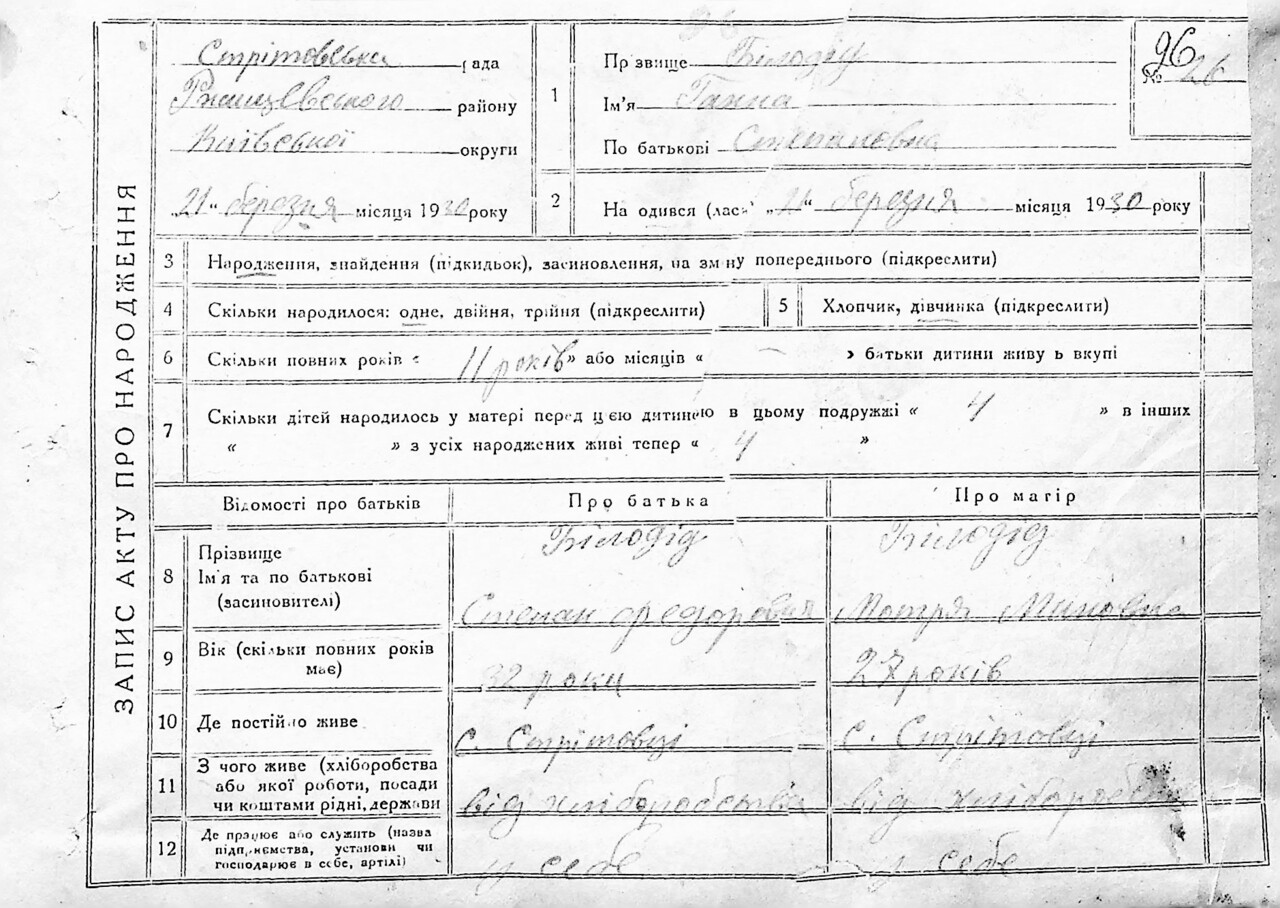 ЗАПИС АКТУ ПРО НАРОДЖЕННЯ
Стрітовська рада
Ржищевського району
Київської округи
„21“ березня місяця 1930 року
1
Прізвище Білодід
Ім'я Ганна
По батькові Степановна
96
№ 26
2
На одився (лась) „21“ березня місяця 1930 року
3 Народження, знайдення (підкидьок), засиновлення, на зміну попереднього (підкреслити)
4 Скільки народилося: одне, двійня, трійня (підкреслити)
5 Хлопчик, дівчинка (підкреслити)
6 Скільки повних років « 11 років» або місяців « – » батьки дитини живу ь вкупі
7 Скільки дітей народилось у матері перед цією дитиною в цьому подружжі « 4 » в інших
« » з усіх народжених живі тепер « 4 »
Відомості про батьків
Про батька
Про матір
8
Прізвище
Ім'я та по батькові
(засиновителі)
Білодід
Степан Федорович
Білодід
Мотря Миновна
9
Вік (скільки повних років
має)
32 роки
27 років
10 Де постійно живе
с. Стрітовці
с. Стрітовці
11
З чого живе (хліборобства
або якої роботи, посади
чи коштами рідні, держави
від хліборобства
від хліборобства
12
Де працює або служить (назва
підприємства, установи чи
господарює в себе, артілі)
у себе
у себе